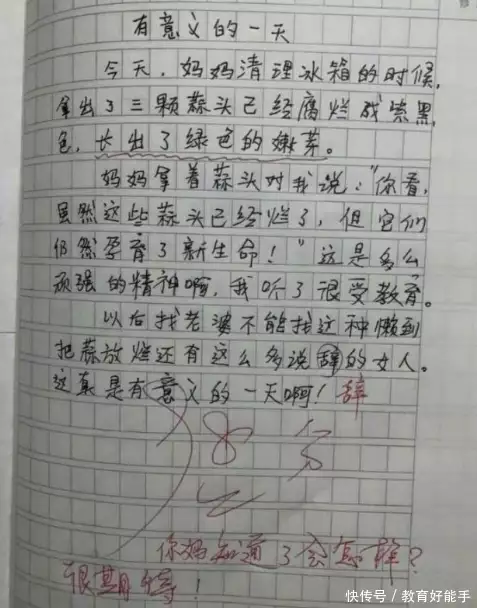 有意义的一天
今天,妈妈清理冰箱的时候,
拿出了三颗蒜头已经腐烂成紫黑
色,长出了绿色的嫩芽。
妈妈拿着蒜头对我说:"你看,
虽然这些蒜头已经烂了,但它们
仍然孕育了新生命!"这是多么
顽强的精神啊,我听了很受教育。
以后找老婆不能找这种懒到
把蒜放烂还有这么多说辞的女人。
这真是有意义的一天啊!辞
8分
你妈知道了会怎样?
很期待!
快传号/教育好能手